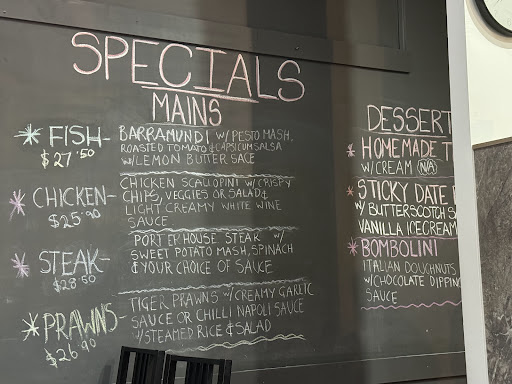 SPECIALS
MAINS
* FISH- BARRAMUNDI W/ PESTO MASH,
$27.50 ROASTED TOMATO & CAPSICUM SALSA
W/LEMON BUTTER SACE
* CHICKEN- CHICKEN SCALLOPINI W/ CRISPY
$25.90 CHIPS, VEGGIES OR SALAD &
LIGHT CREAMY WHITE WINE
SAUCE
* STEAK- PORTERHOUSE STEAK W/
$28.50 SWEET POTATO MASH, SPINACH
& YOUR CHOICE OF SAUCE
* PRAWNS- TIGER PRAWNS W/CREAMY GARLIC
$26.90 SAUCE OR CHILLI NAPOLI SAUCE
W/STEAMED RICE & SALAD
DESSERT
* HOMEMADE T
W/CREAM N/A
* STICKY DATE
W/ BUTTERSCOTCH S
VANILLA ICECREAM
* BOMBOLINI
ITALIAN DOUGHNUTS
W/CHOCOLATE DIPPING
SAUCE